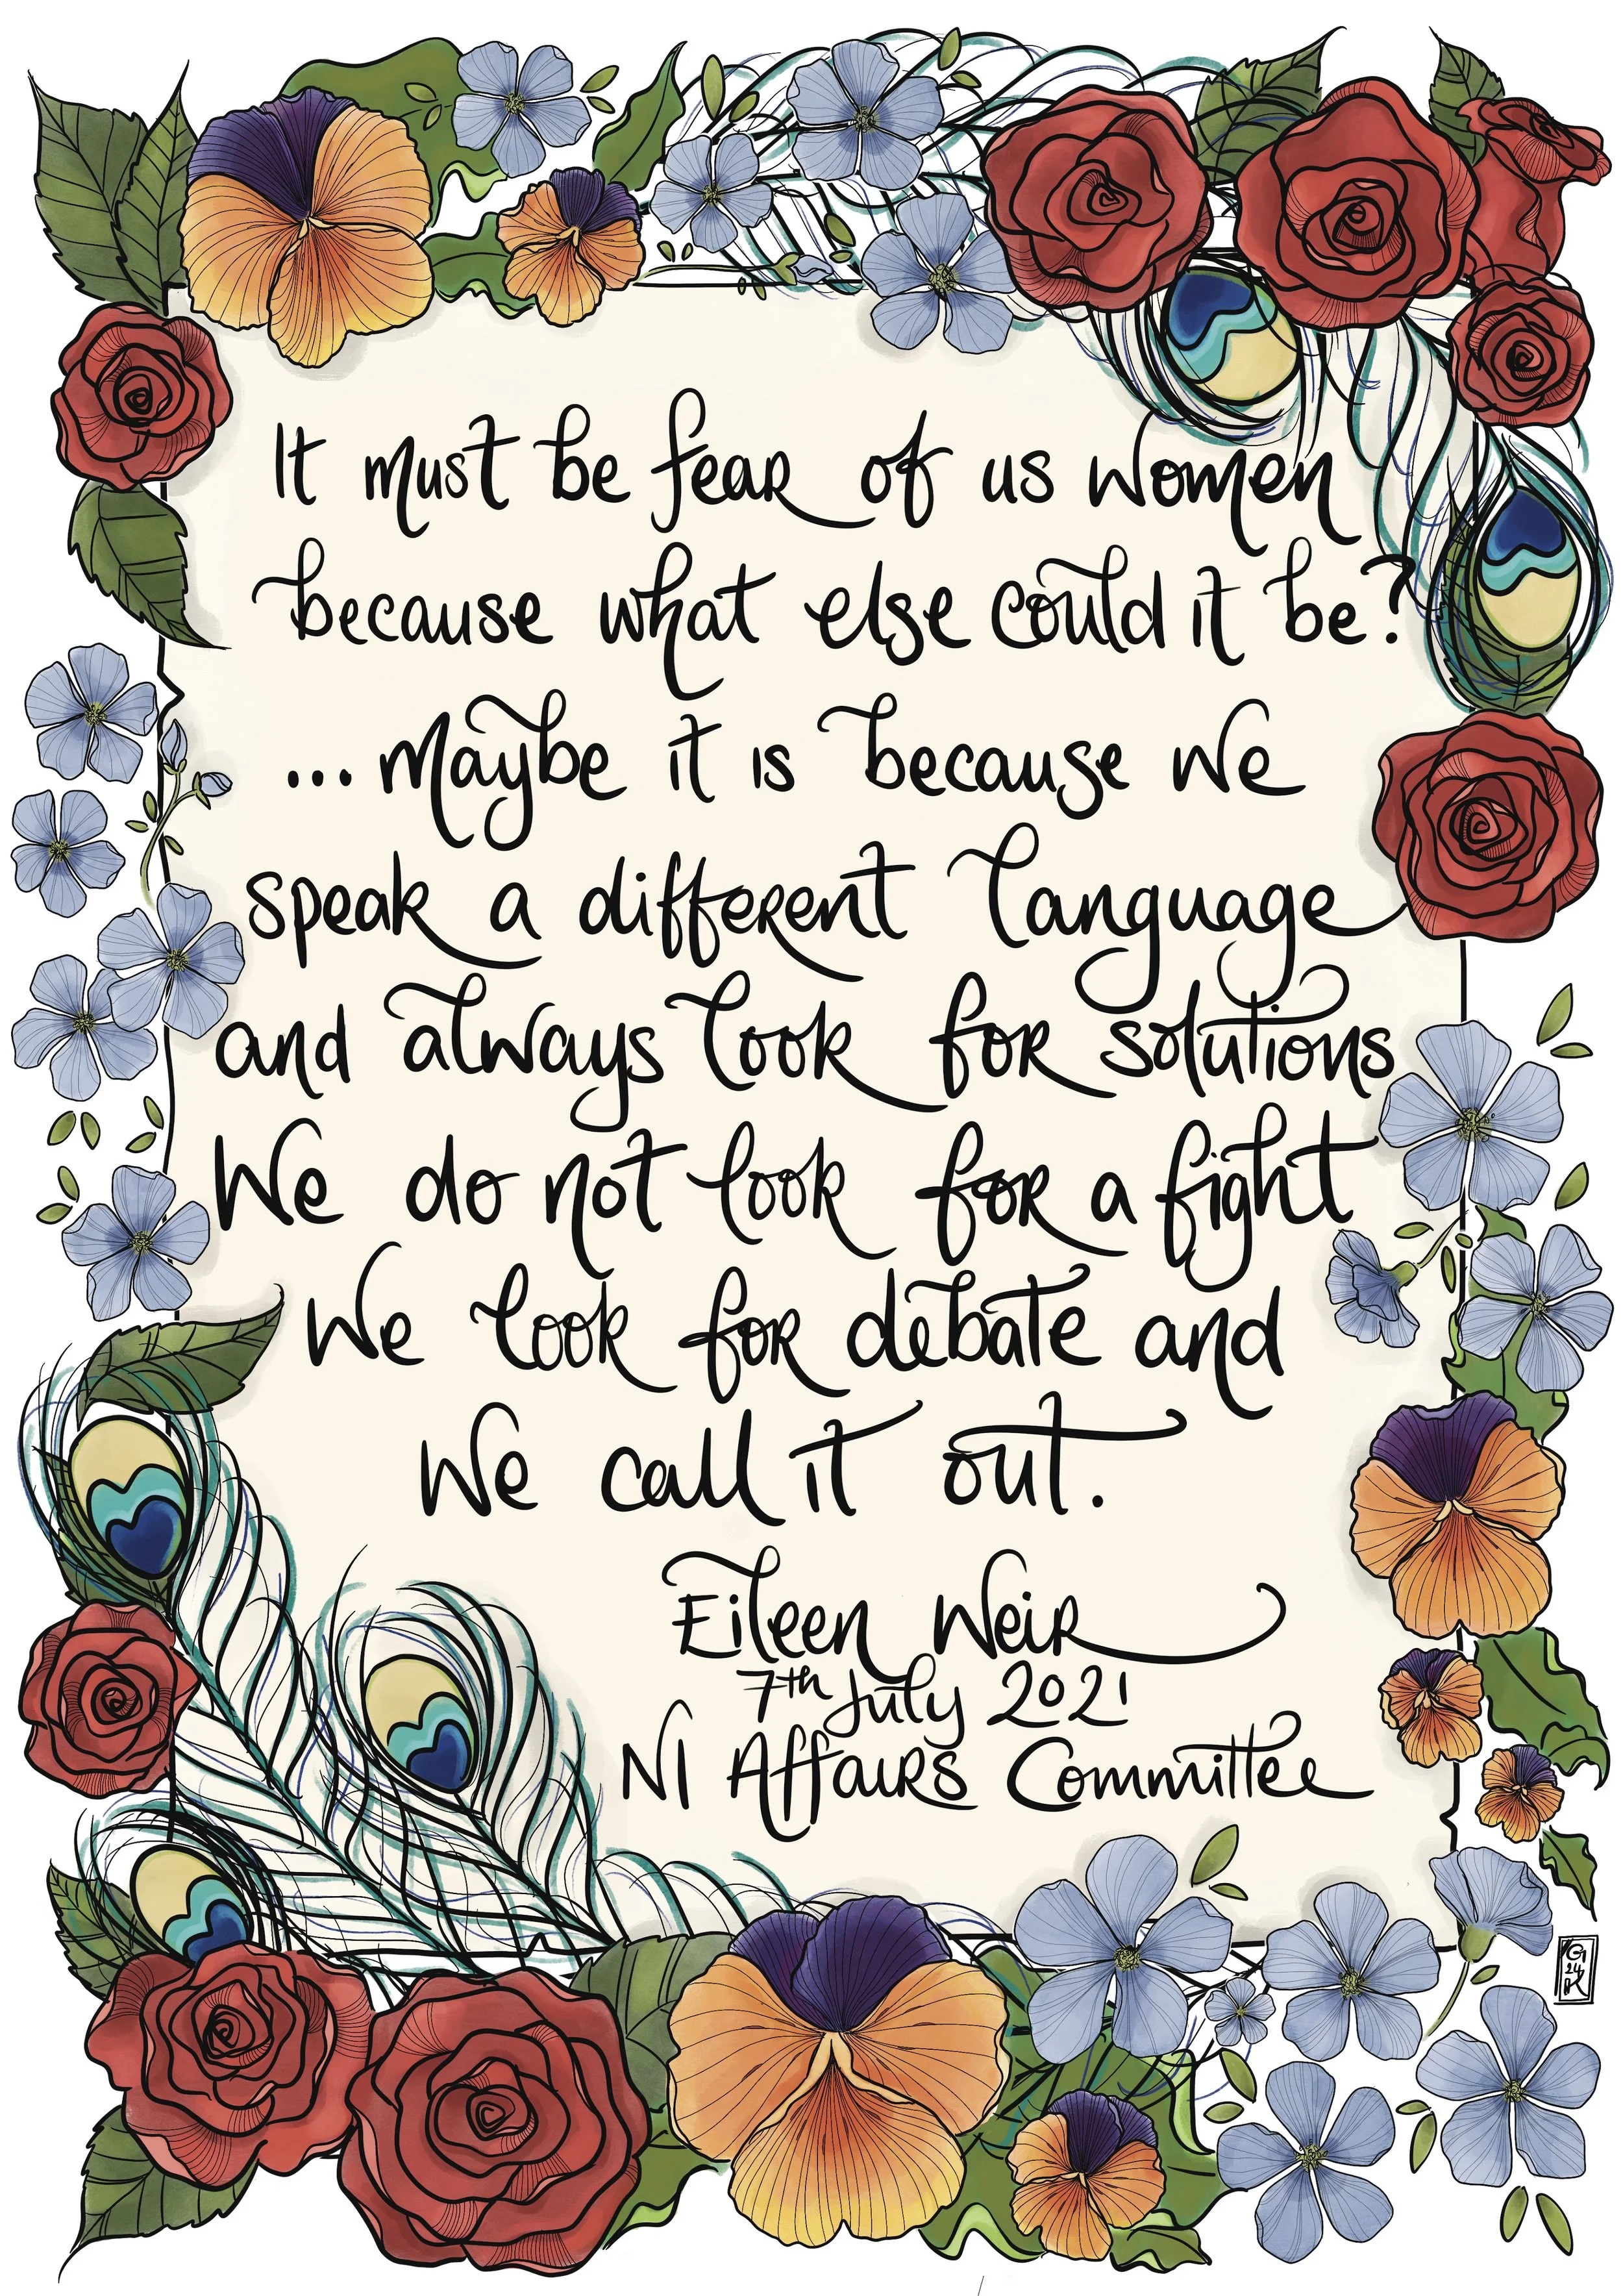 It must be fear of us women
because what else could it be?
... Maybe it is because we
speak a different language
and always look for solutions
We do not look for a fight
We look for debate and
We call it out.
Eileen Weir
7th July 2021
NI Affairs Committee
G
24
K